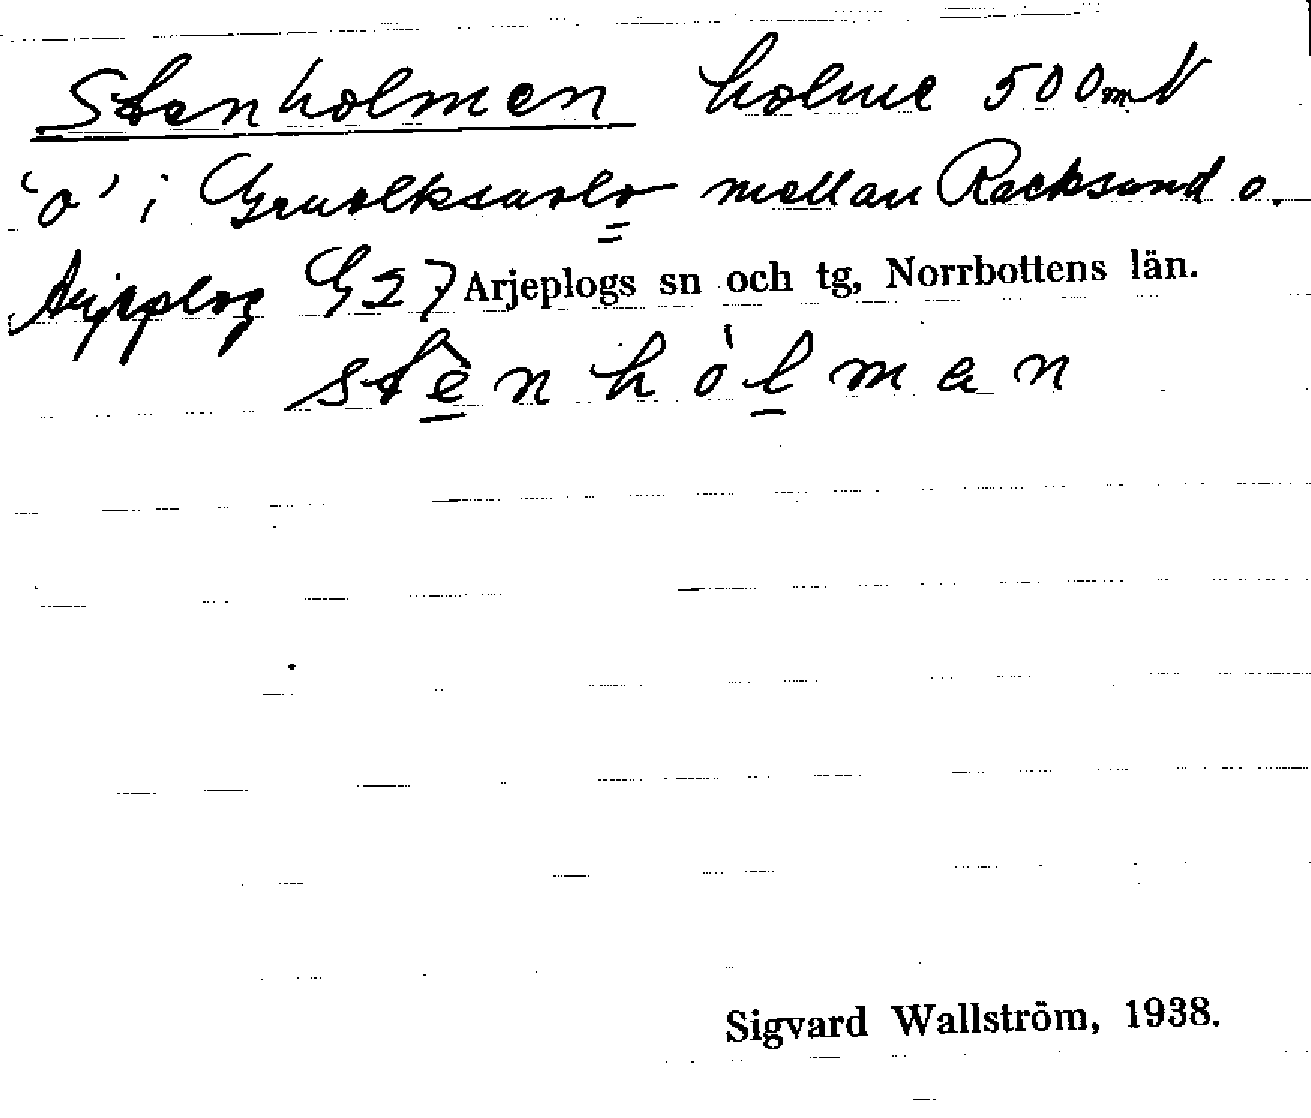 Stenholmen holme 500 m N
'o' i mellan Racksund o.
Arjeplog G 27 Arjeplogs sn och tg, Norrbottens län.
stenhólman
Sigvard Wallström, 1938.